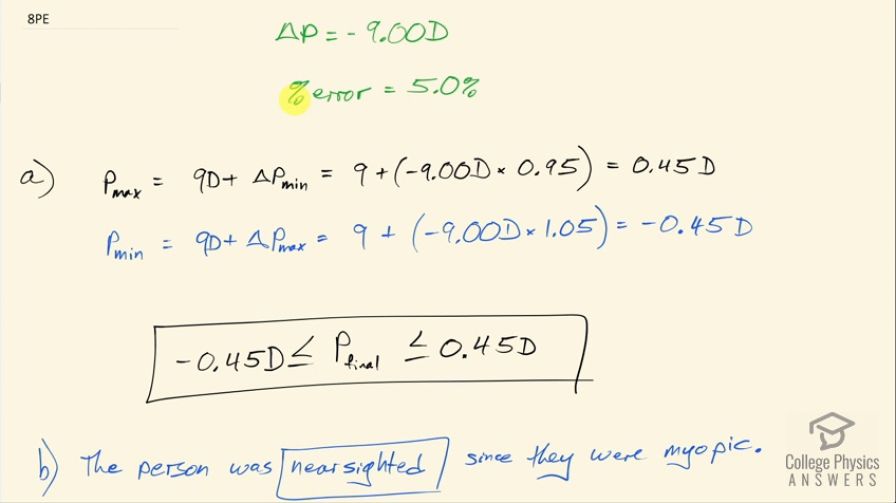 8PE
ΔP = - 9.00D
% error = 5.0%
a) Pmax = 9D + ΔPmin = 9 + (-9.00D × 0.95) = 0.45D
Pmin = 9D + ΔPmax = 9 + (-9.00D × 1.05) = -0.45D
-0.45D ≤ Pfinal ≤ 0.45D
b) The person was nearsighted since they were myopic.
College Physics
ANSWERS